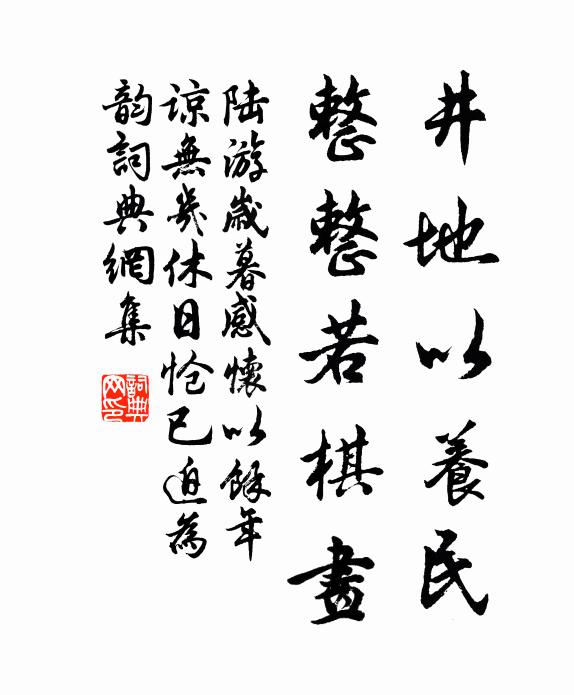 井地以養民
整整若棋畫
陆游歲暮感懷以餘年
諒無幾休日愴已迫為
韵詞典網集
詞典網印